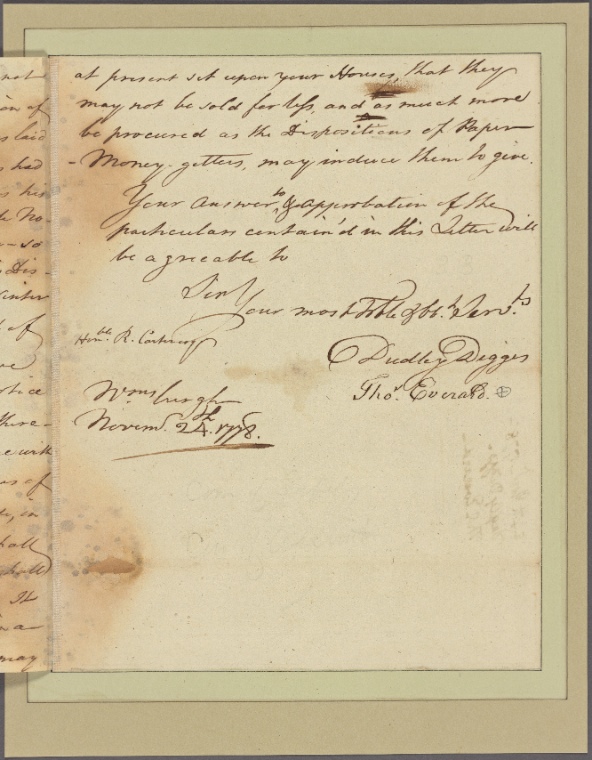 at present set upon your Houses, that they
may not be sold for less, and as much more
be procured as the Dispositions of Paper
-Money-getters, may induce them to give.
Your answer to & approbation of the
particulars contain'd in this Letter will
be agreeable to
Sir
Your most Hble Obt. Servts
Honble R. Corbin
Dudley Digges
Thos. Everard.
Wmsburgh
Novem. 24th. 1778.
not
on of
laid
had
his
No-
so
Dis-
of
there-
with
of
in
It
may